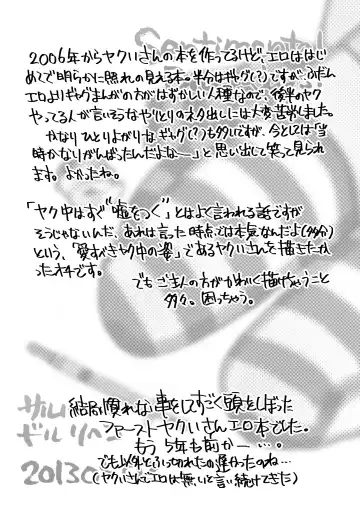 Sentimental
2006年からヤクいさんの本を作ってるけど、エロははじ
めてで明らかに照れの見える本。半分はギャグ(?)ですが、ふだん
エロよりギャグまんがの方がはずかしい人種なので、後半のヤク
やってる人が言いそうなやりとりのネタ出しには大変苦労しました。
かなりひとりよがりなギャグ(?)も多いですが、今としては「当
時かなりがんばったんだよな──」と思い出して笑って見られ
ます。よかったね。
「ヤク中はすぐ"嘘をつく"とはよく言われる話ですが
そうじゃないんだ、あれは言った時点では本気なんだよ(多分)
という、「愛すべきヤク中の姿」であるヤクいさんを描きたか
った本です。
でもご主人の方がかわいく描けちゃうこと
多々。困っちゃう。
結局慣れない事をしてすごく頭をしぼった
ファーストヤクいさんエロ本でした。
もう5年も前か─…。
でも以外とふっ切れたの遅かったのね…
(ヤクいさんでエロは無いと言い続けてきた)
2013